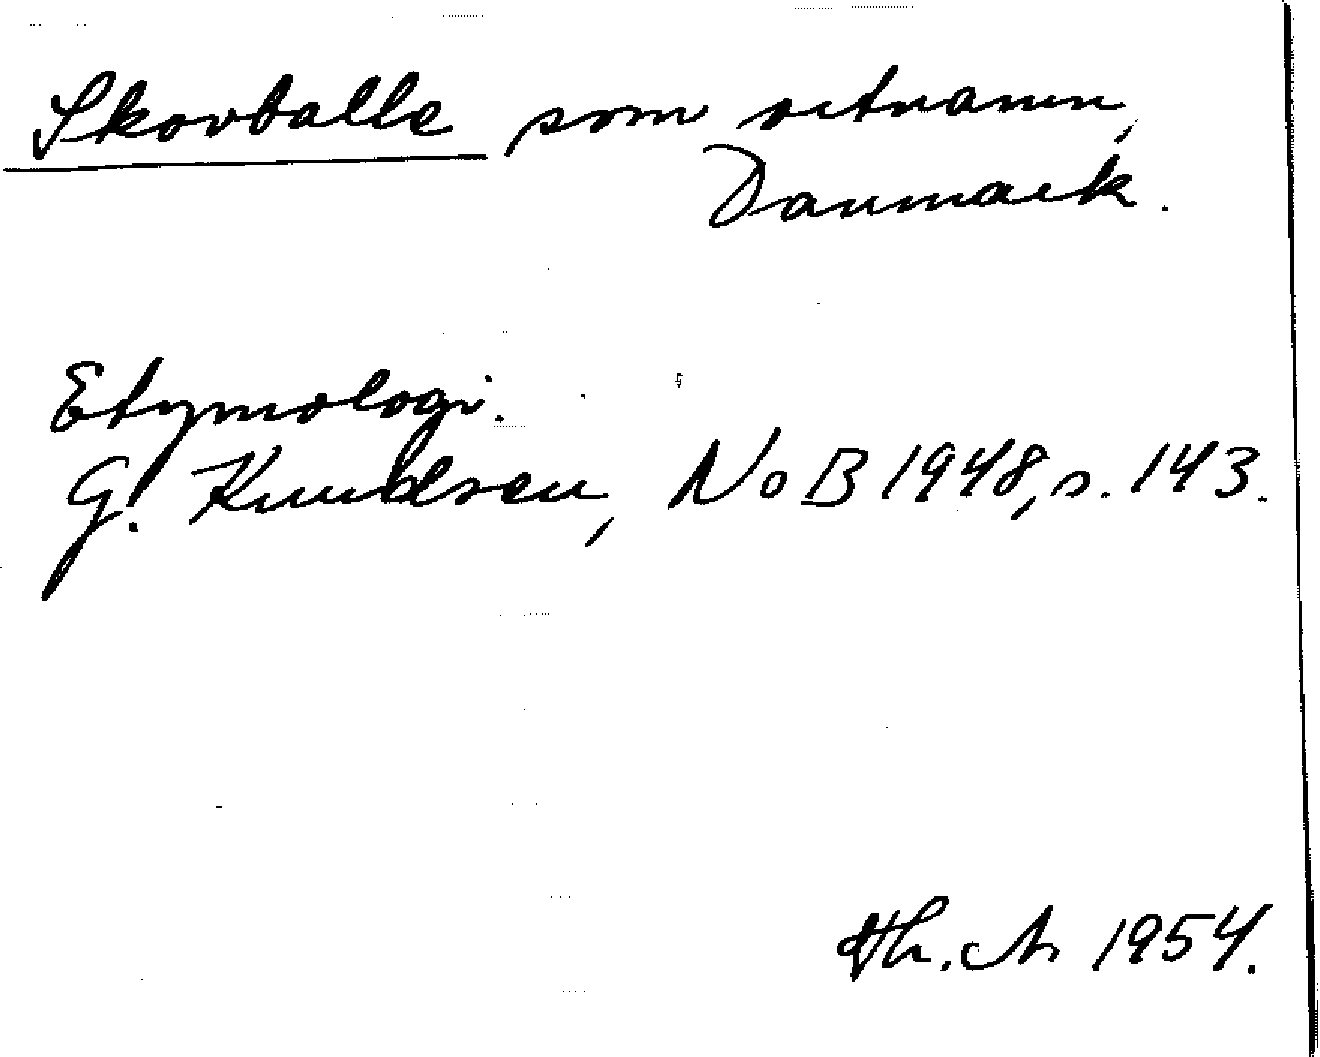 Skovballe som ortnamn,
Danmark.
Etymologi.
G. Knudsen, NoB 1948, s. 143.
Th. A. 1954.